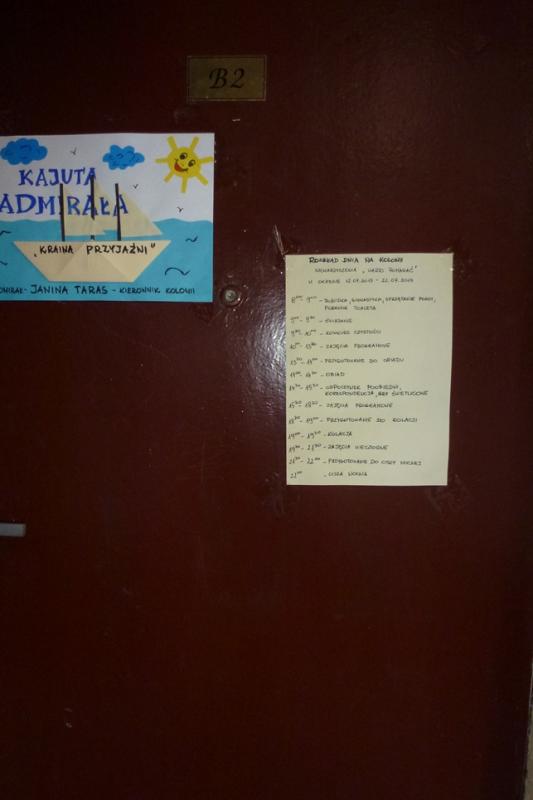 B2
KAJUTA
ADMIRAŁA
„KRAINA PRZYJAŹNI"
JANINA TARAS - KIEROWNIK KOLONII
ROZKŁAD DNIA NA KOLONII
STOWARZYSZENIA „WARTO POMAGAĆ"
W OKRESIE 12.07.2013 - 22.07.2013
8⁰⁰ - 9⁰⁰ - POBUDKA, GIMNASTYKA, SPRZĄTANIE POKOI,
PORANNA TOALETA
9⁰⁰ - 9³⁰ - ŚNIADANIE
9³⁰ - 10⁰⁰ - KONKURS CZYSTOŚCI
10⁰⁰ - 13³⁰ - ZAJĘCIA PROGRAMOWE
13³⁰ - 14⁰⁰ - PRZYGOTOWANIE DO OBIADU
14⁰⁰ - 14³⁰ - OBIAD
14³⁰ - 15³⁰ - ODPOCZYNEK POOBIEDNI,
KORESPONDENCJA, GRY ŚWIETLICOWE
15³⁰ - 18³⁰ - ZAJĘCIA PROGRAMOWE
18³⁰ - 19⁰⁰ - PRZYGOTOWANIE DO KOLACJI
19⁰⁰ - 19³⁰ - KOLACJA
19³⁰ - 21³⁰ - ZAJĘCIA WIECZORNE
21³⁰ - 22⁰⁰ - PRZYGOTOWANIE DO CISZY NOCNEJ
22⁰⁰ - CISZA NOCNA